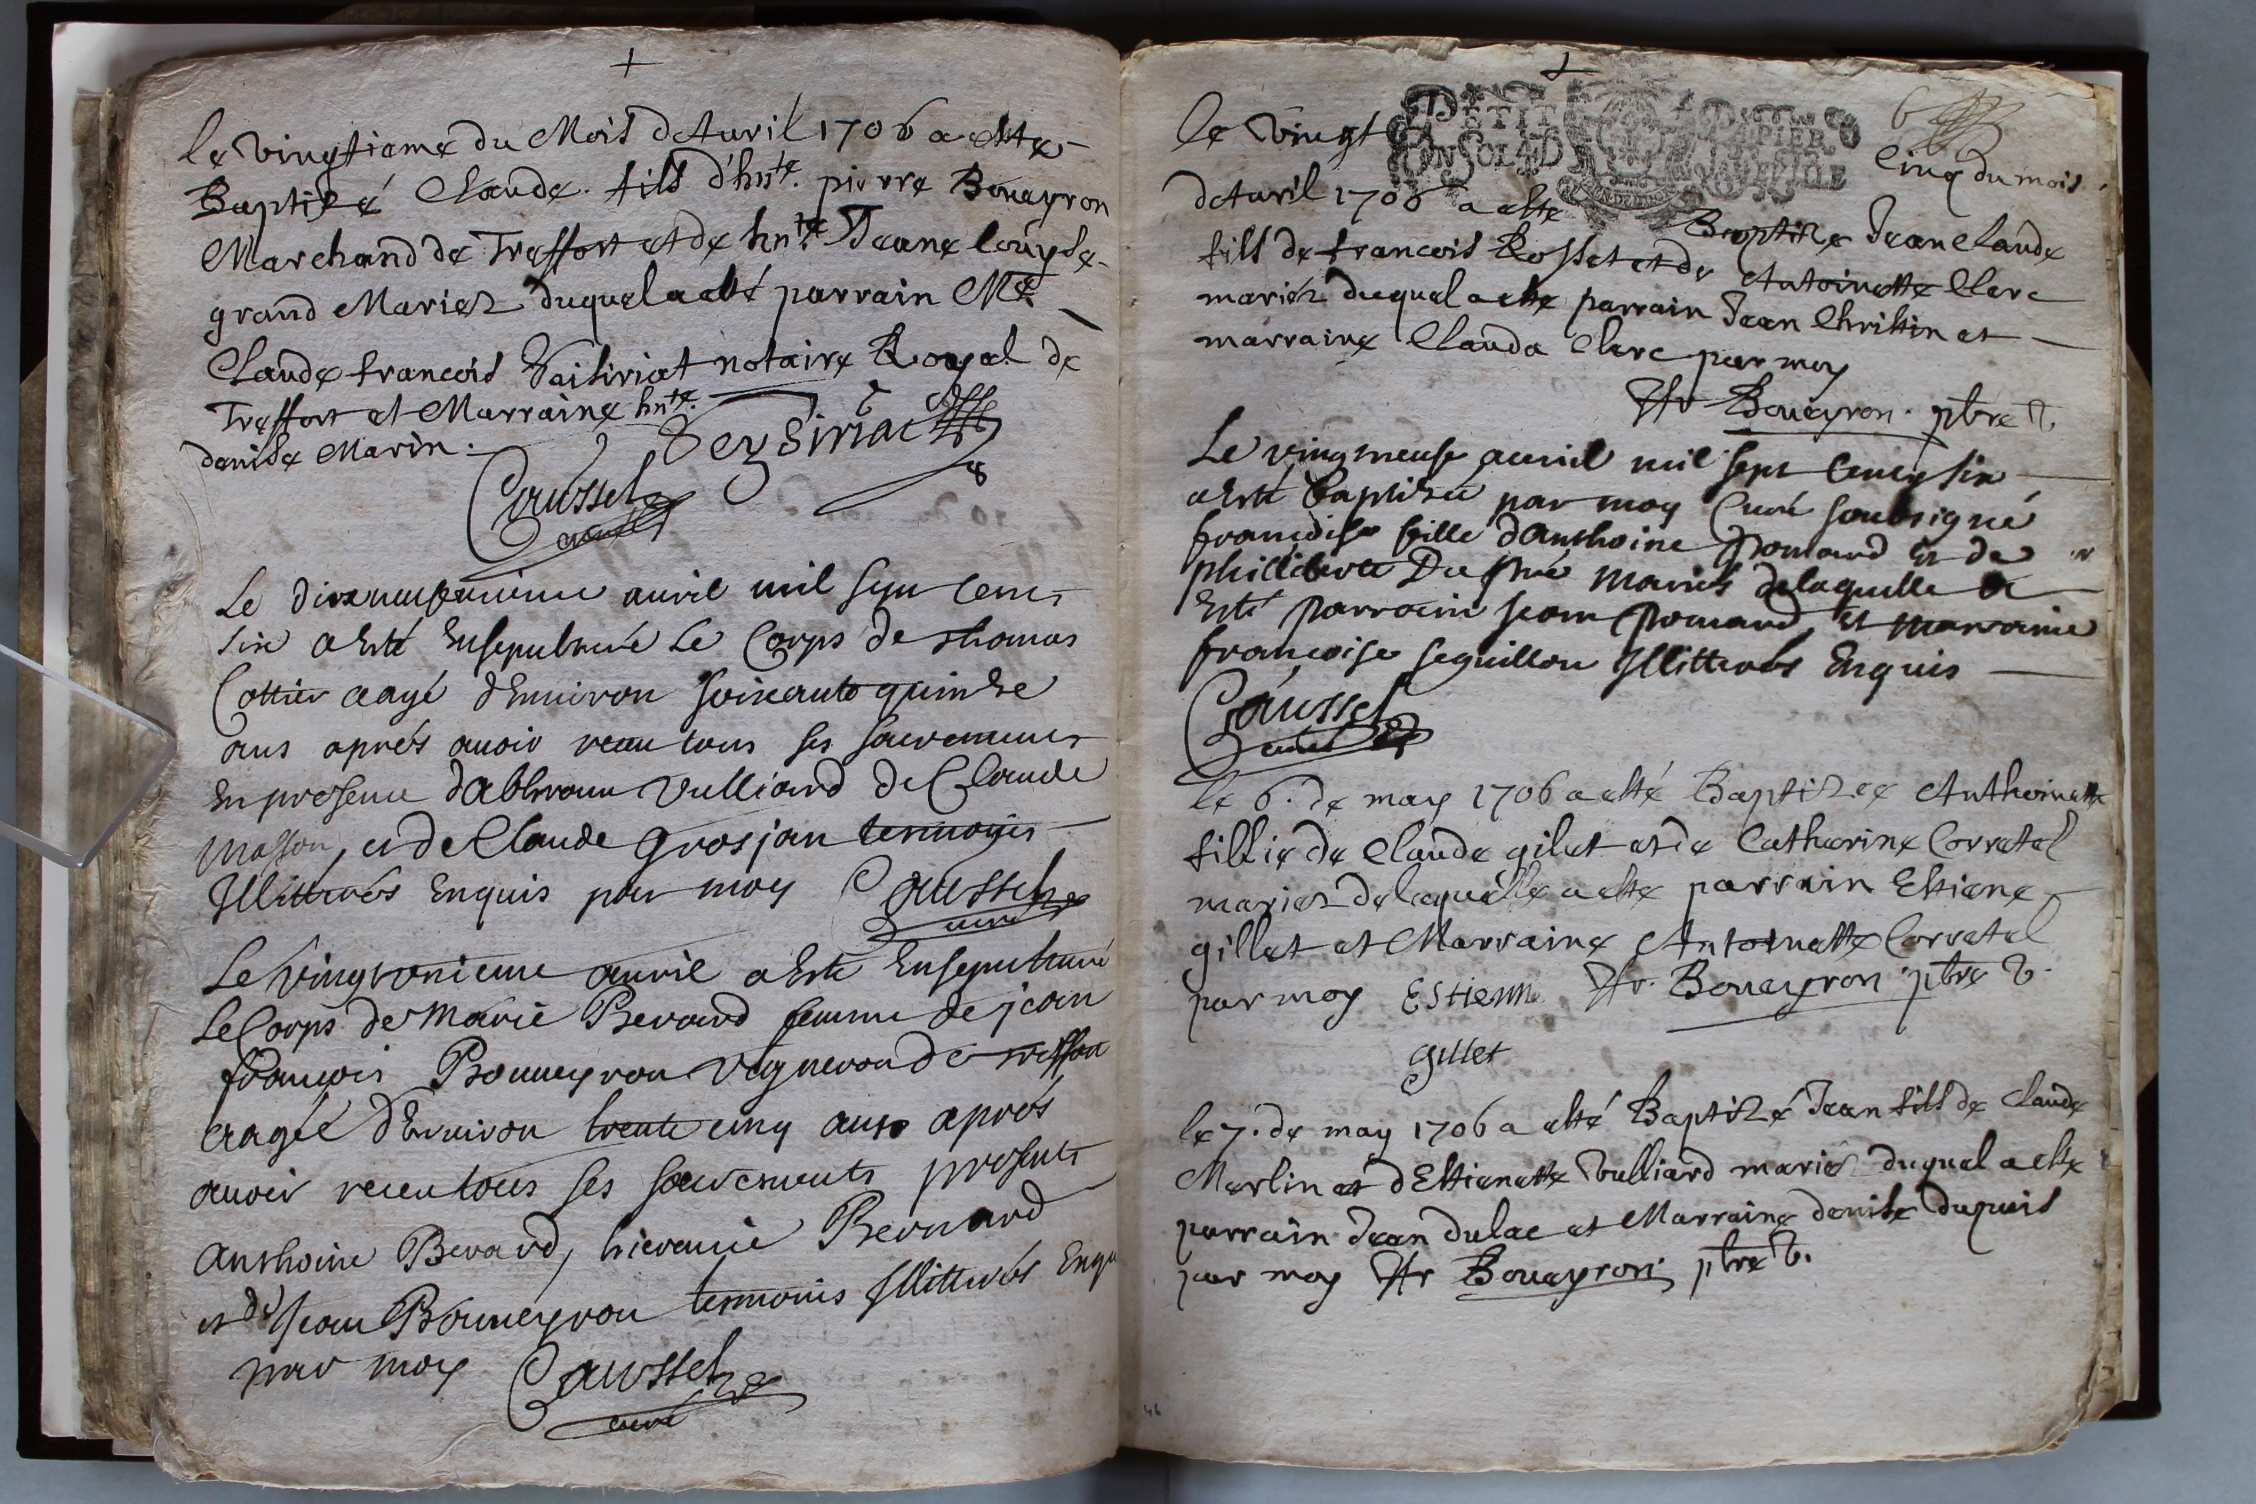 +
le vingtiame du Mois d'Auril 1706 a esté
Baptizé Claude fils d'hnte. pierre Boueyron
Marchand de Treffort et de hnte. Jeane louyse
grand Mariez duquel a esté parrain Me.
Claude francois Vaisiriat notaire Royal de
Treffort et Marraine hnte.
denise Marin : Veysiriat
Caussel
curé
Le dixneufvieme auril mil sept cens
six a esté Ensepulturé Le Corps de thomas
Cottier aagé d'Enuiron soixante quinze
ans aprés auoir receu tous ses sacremens
En presence d'Abbraam Vulliard De Claude
Masson, et de Claude Grosjan temoins
Illitterés Enquis par moy Caussel
curé
Le vingtonieme auril a esté Ensepulturé
Le Corps de Marie Berard femme de jean
françois Bouueyron vigneron de treffort
aagée d'Enuiron trente cinq ans aprés
auoir receu tous ses sacrements presents
Anthoine Berard, hieremie Bernard
et de Jean Bouueyron temoins Illitterés Enqu
par moy Caussel
curé
+
PETIT PAPIER
6
le vingt cinq du mois
d'Auril 1706 a esté Baptize Jean Claude
fils de francois Rosset et de Antoinette Clerc
mariéz duquel a esté parrain Jean Christin et
marraine Clauda Clerc par moy
Boueyron. pbre v.
Le vingtneufe auril mil sept Cent six
a esté baptizée par moy Curé soubsigné
françoise fille d'Anthoine Pomard et de
phillberte Du Pré Mariés delaquelle a
Esté parrain jean Pomard, et marraine
françoise seguillon Illitterés Enquis
Caussel
curé
le 6. de may 1706 a esté Baptizée Anthoinette
fillie de Claude gilet et de Catherine Corretel
mariez delaquelle a esté parrain Estiene
gillet et Marraine Antoinette Corretel
par moy Estienne Boueyron pbre v.
gillet
le 7. de may 1706 a esté Baptizé Jean fils de Claude
Merlin et d'Estienette Vulliard mariés duquel a esté
parrain Jean dulac et Marraine denise dupuis
par moy Boueyron pbre v.
46